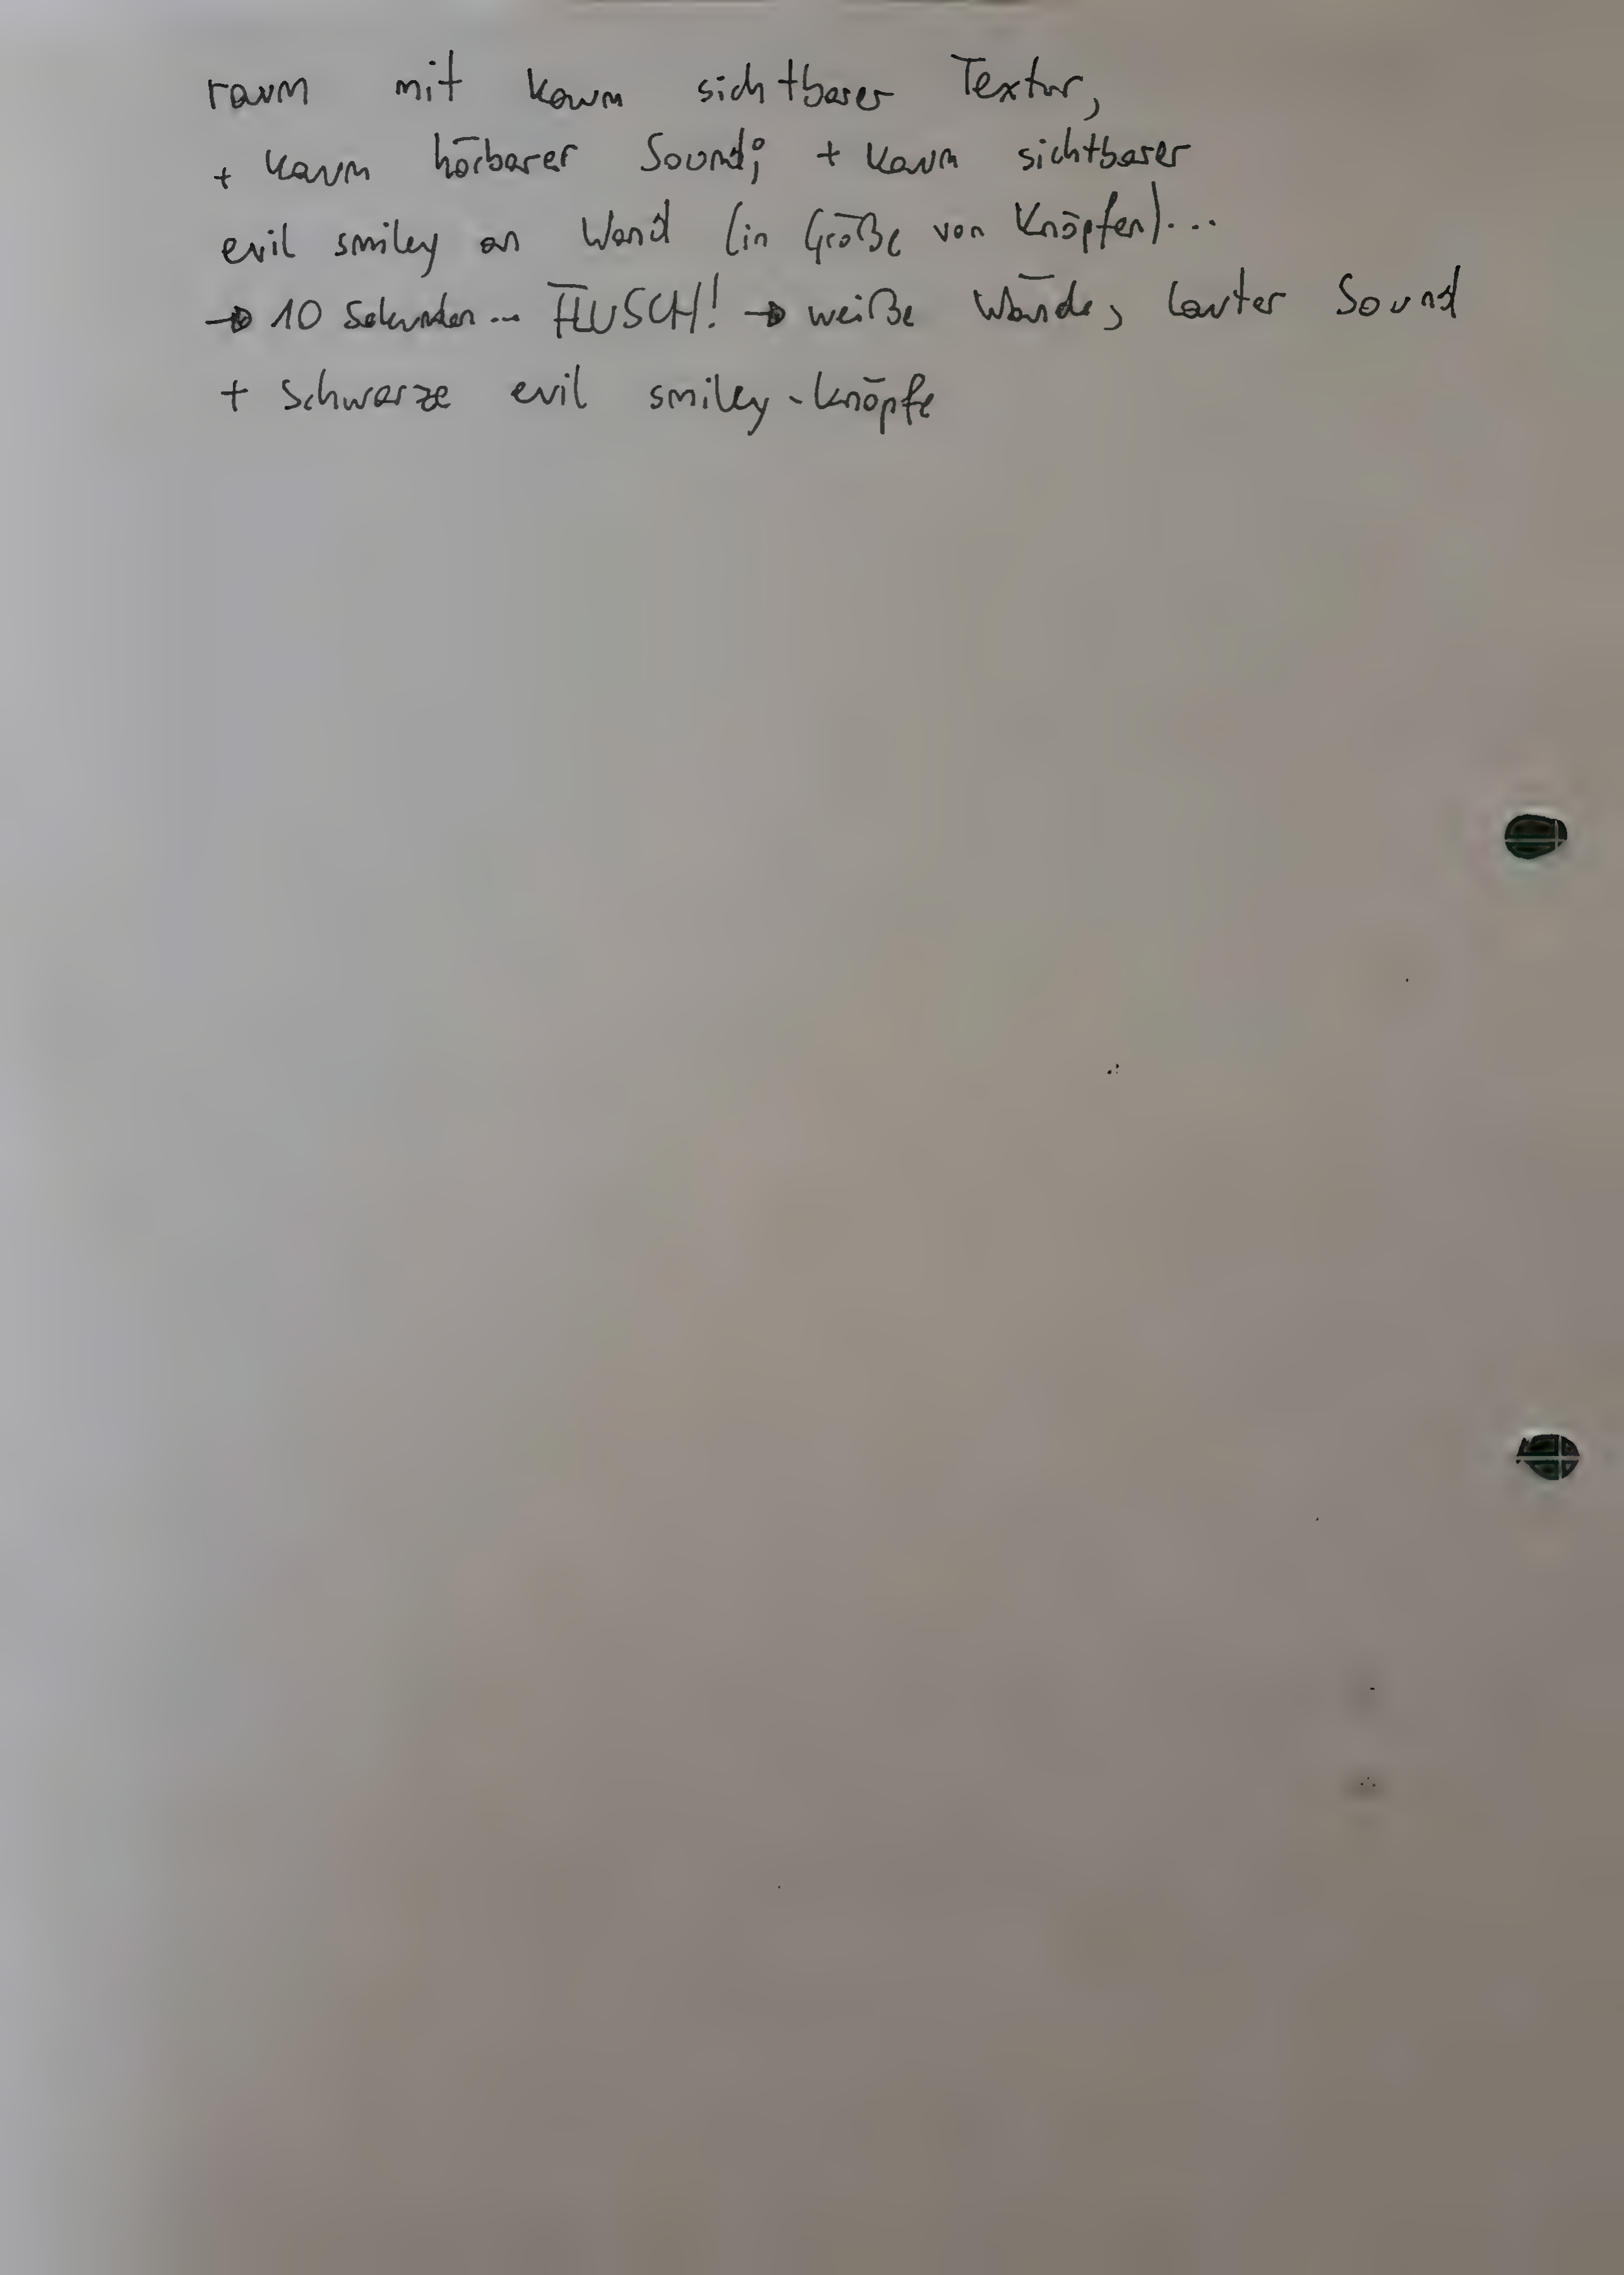 raum mit kaum sichtbarer Textur,
+ kaum hörbarer Sound; + kaum sichtbarer
evil smiley an Wand (in Größe von Knöpfen)...
→ 10 Sekunden... FLUSCH! → weiße Wände, lauter Sound
+ schwarze evil smiley-knöpfe